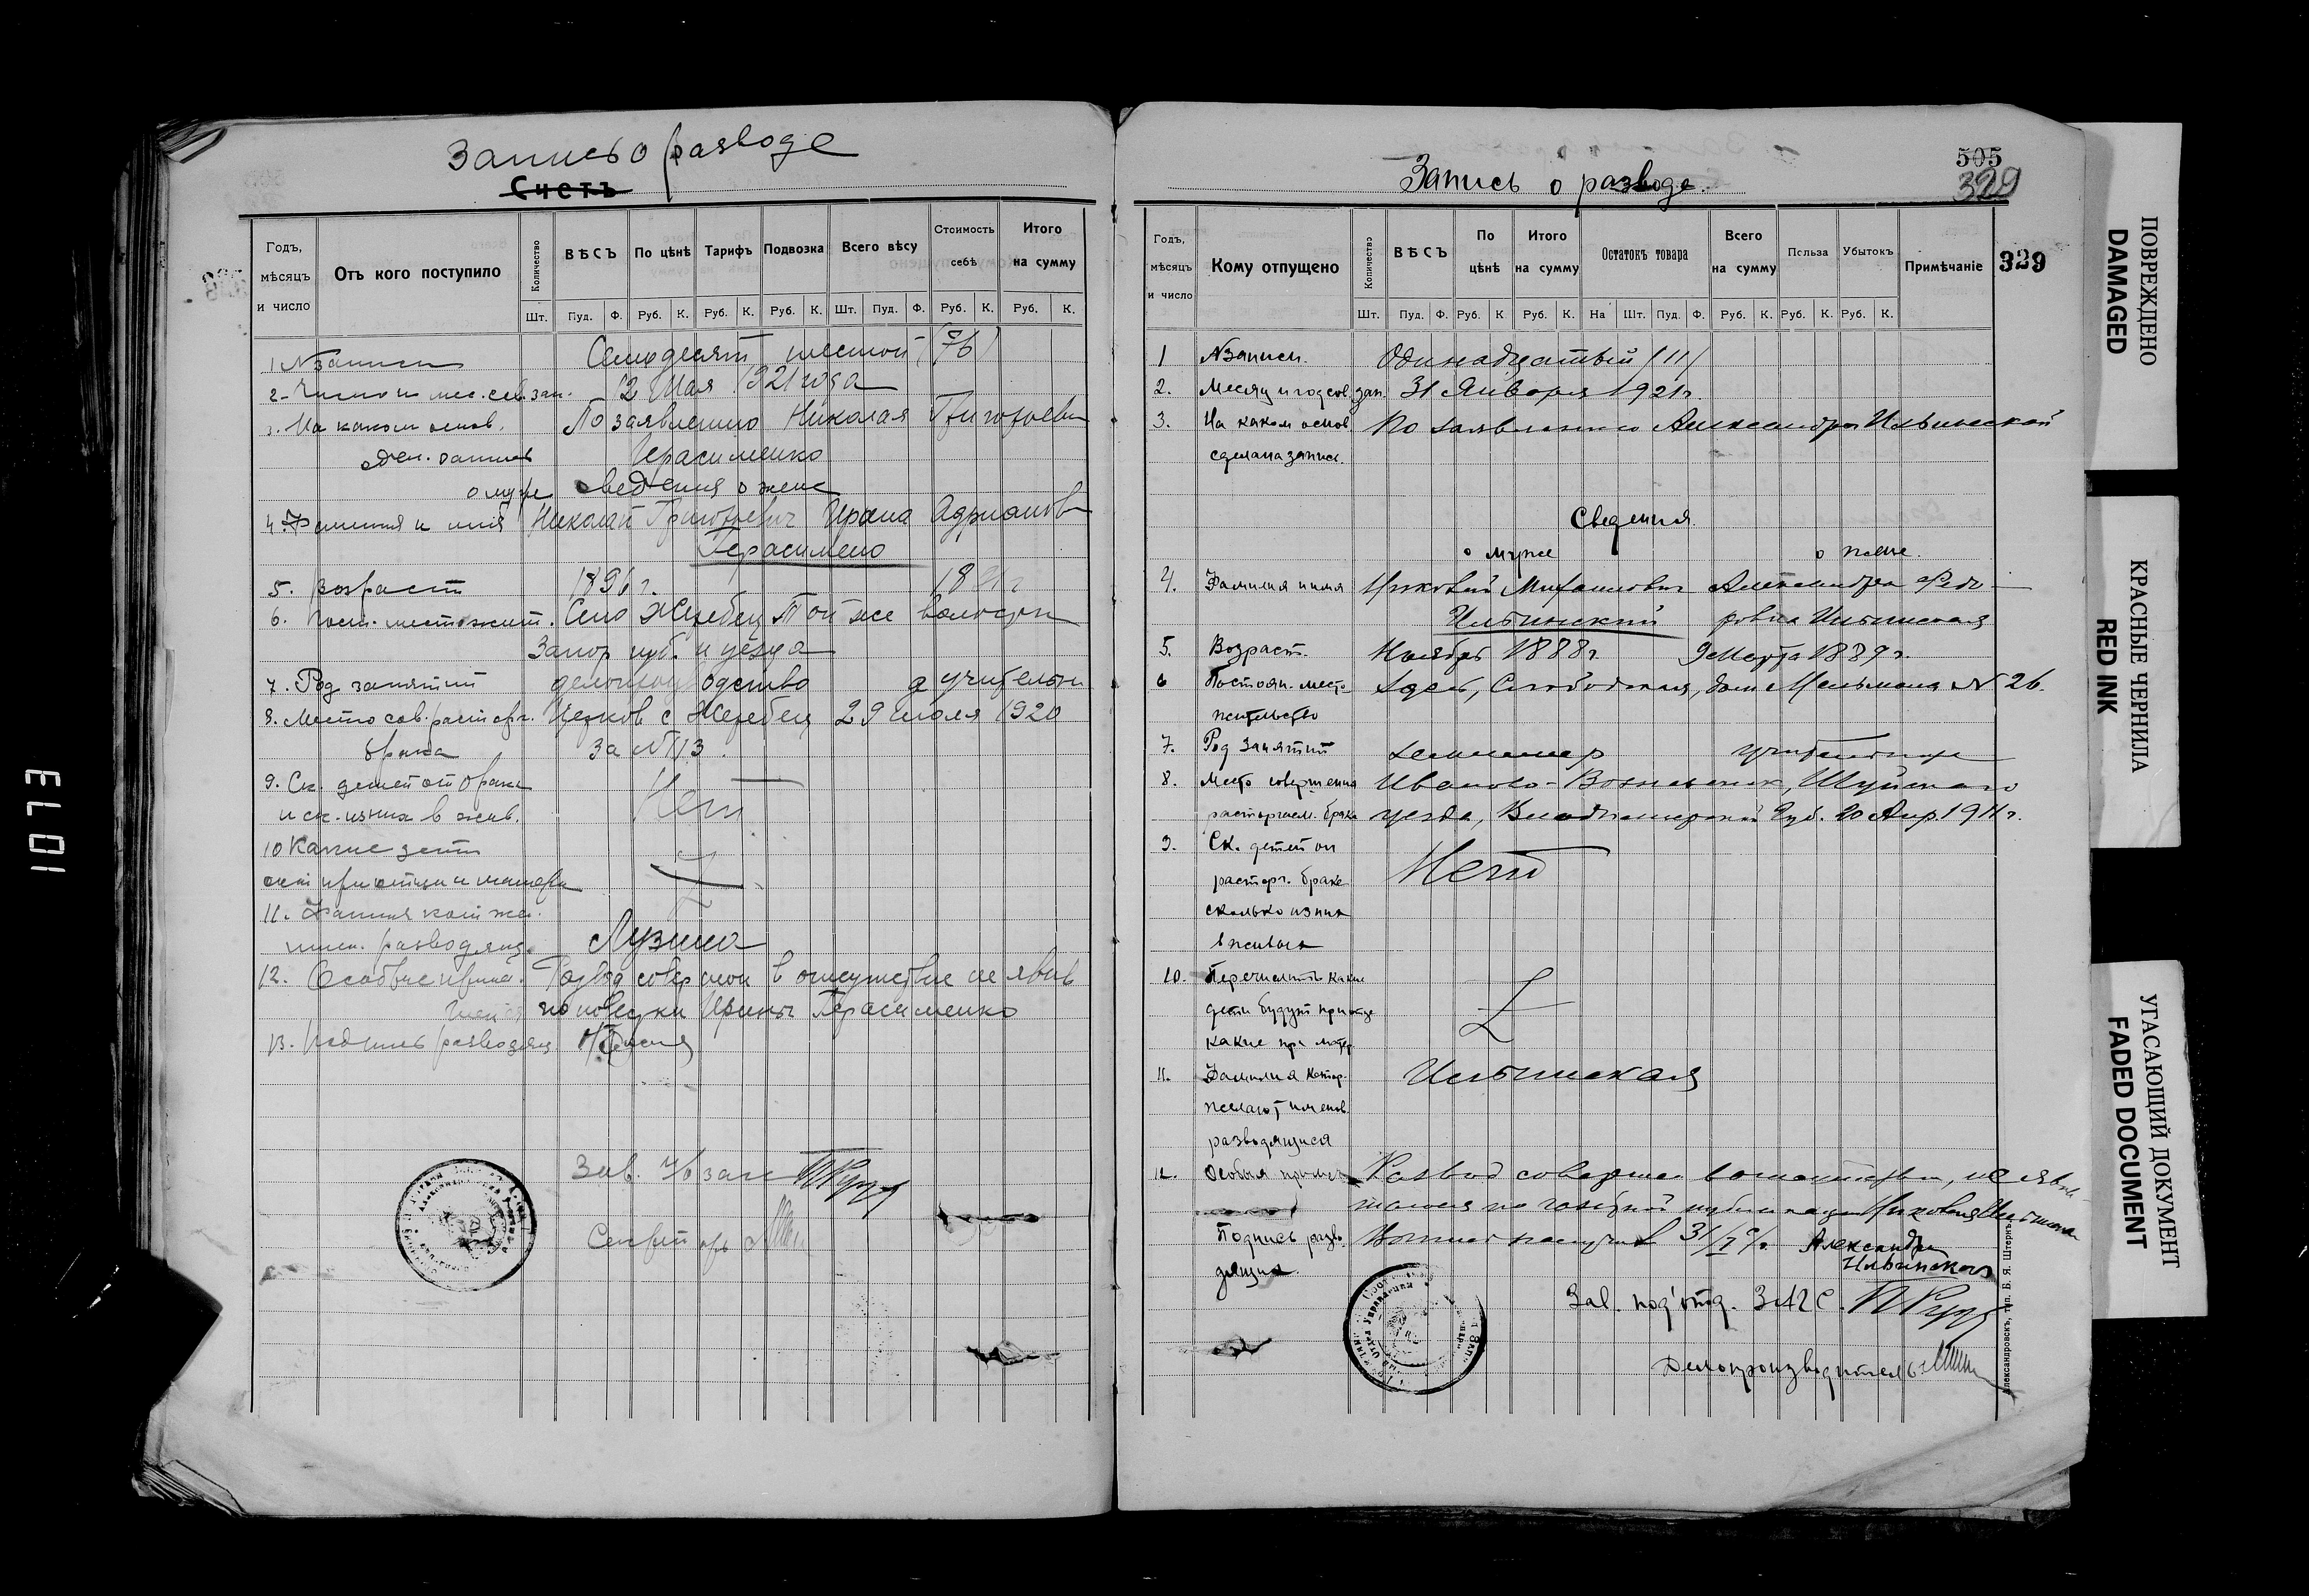 Запись о разводе
Счетъ
Годъ, мѣсяцъ и число
Отъ кого поступило
Количество
ВѢСЪ
По цѣнѣ
Тарифъ
Подвозка
Всего вѣсу
Стоимость себѣ
Итого на сумму
Шт. Пуд. Ф. Руб. К. Руб. К. Руб. К. Шт. Пуд. Ф. Руб. К. Руб. К.
1 № записи Семьдесят шестой (76)
2. Число и мес. сов. зап. 12 Мая 1921 года
3. На каком основ. По заявлению Николая Григорьевич
зап Герасименко
о муже сведения о жене
4. Фамилия и имя Николай Григорьевич Ирина Адрианов
Герасименко
5. Возраст 1896 г.
6. Пост. местожит. Село Жеребец Той же волости
Запор. губ. и уезда
7. Род занятий делопроизводство учительн
8. Место сов. расторг. Церков с Жеребец 29 июля 1920
брака за № 13.
9. Ск. детей от брака
и ск. из них в жив. Нет
10 Какие дети
при отце и матери
11. Фамил кот. же.
имен. разводящ. Лузина
12. Особые приме. Развод совершен в отсутствие не явив
шейся по повестки Ирины Герасименко
13. Подпись разводящ
Зав. п/о загс
Секретарь
505
329
Запись о разводе.
Годъ, мѣсяцъ и число
Кому отпущено
Количество
ВѢСЪ
По цѣнѣ
Итого на сумму
Остатокъ товара
Всего на сумму
Польза
Убытокъ
Примѣчаніе
329
Шт. Пуд. Ф. Руб. К Руб. К. На Шт. Пуд. Ф. Руб. К. Руб. К. Руб. К.
1 № записи. Одинадцатый /11/
2. Месяц и год сов. зап. 31 Января 1921 г.
3. На каком основ. По заявлению Александры Ильинской
сделана запись.
Сведения.
о муже о жене.
4. Фамилия и имя Александра Федо-
Ильинский ровна Ильинская
5. Возраст. Ноябрь 1888 г. 9 Марта 1889 г.
6 Постоян. место Здесь, Слободская, дом Мельмана № 26.
жительство
7. Род занятий землемер учительница
8. Место совершения Иваново-Вознесенск, Шуйского
расторгаем. брака уезда, Владимирской Губ. 20 Апр. 1911 г.
9. Ск. детей от
расторг. браке Нет
сколько из них
в живых
10. Перечислить какие
дети будут при отце
какие при матер.
11. Фамилия котор. Ильинская
желают именов.
разводящиеся
12. Особыя примеч. Развод совершен в отсутствии, не явив-
шагося по газетной публикации Ильинск
Подпись разво- Копию получил 31/I 21 г. Александра
дящихся. Ильинская
Зав. под'отд. ЗАГС.
Делопроизводитель
Александровскъ, тип. Б. Я. Штерна.
ПОВРЕЖДЕНО
DAMAGED
КРАСНЫЕ ЧЕРНИЛА
RED INK
УГАСАЮЩИЙ ДОКУМЕНТ
FADED DOCUMENT